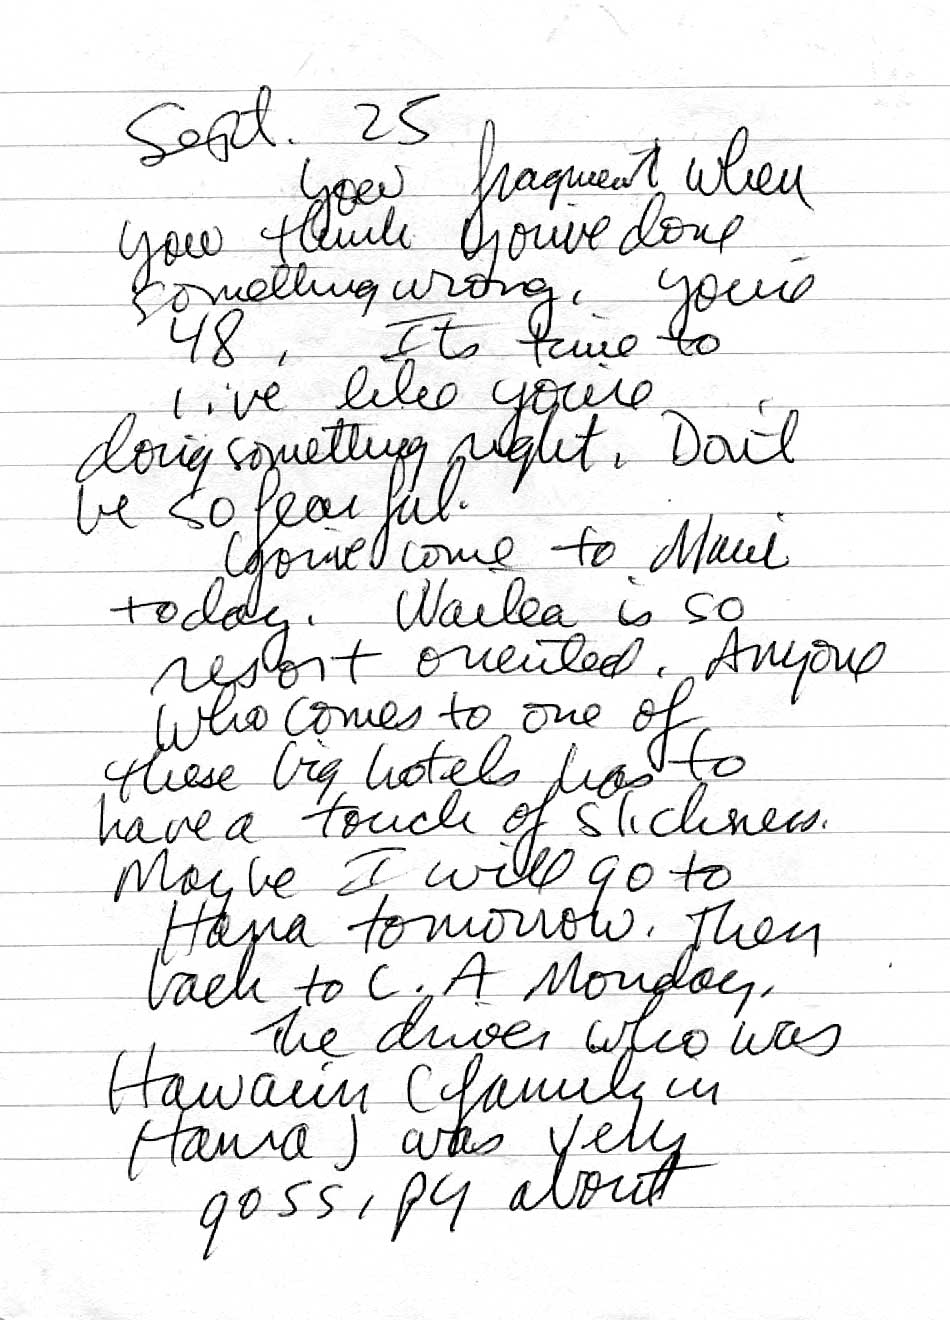 Sept. 25
You fragment when
you think you've done
something wrong. You're
48. It's time to
live like you're
doing something right. Don't
be so fearful.
You've come to Maui
today. Wailea is so
resort oriented. Anyone
who comes to one of
these big hotels has to
have a touch of slickness.
Maybe I will go to
Hana tomorrow. Then
back to C.A Monday.
The driver who was
Hawaiin (family in
Hana) was very
gossipy about